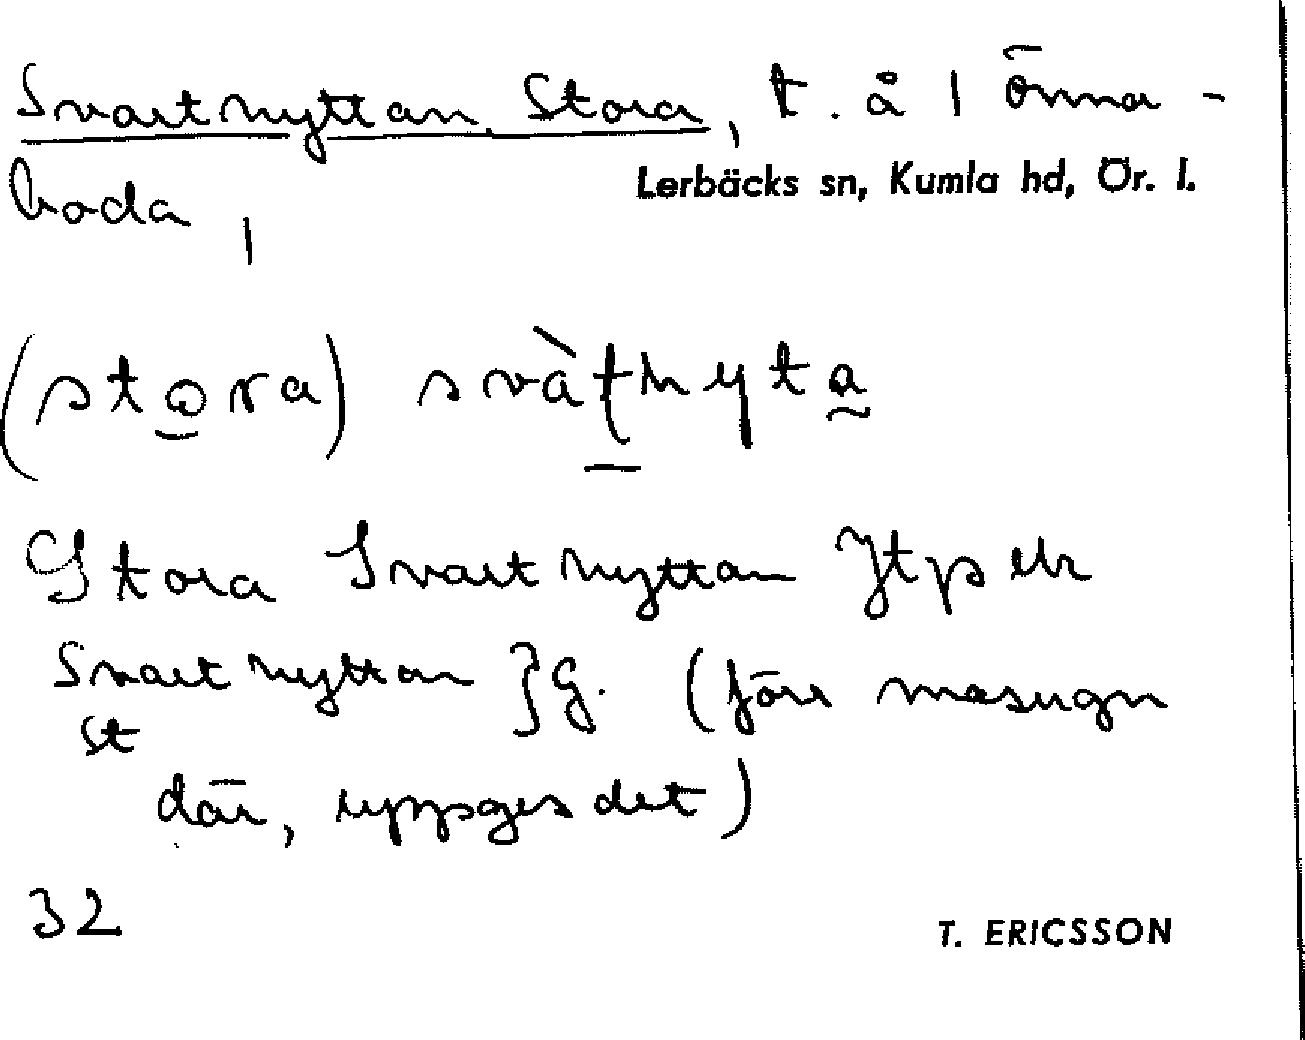 Svartnyttan, Stora, t. å 1 Önna-
Lerbäcks sn, Kumla hd, Ör. l.
boda,
(stora) svàtnyta
Stora Svartnyttan Jtp
Svartnyttan }G. (förr masugn
st
där, uppges det)
32
T. ERICSSON